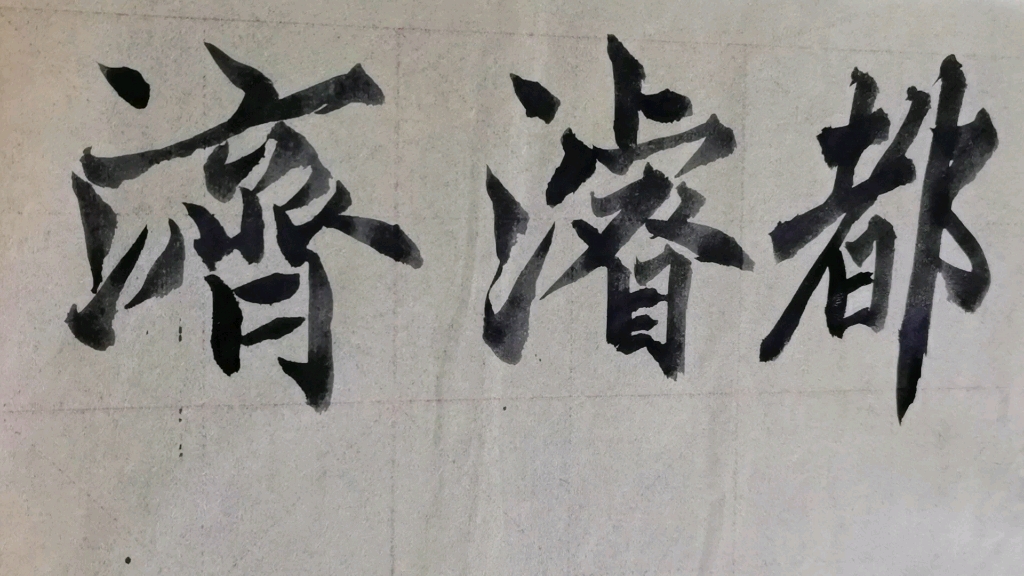 濟濬都